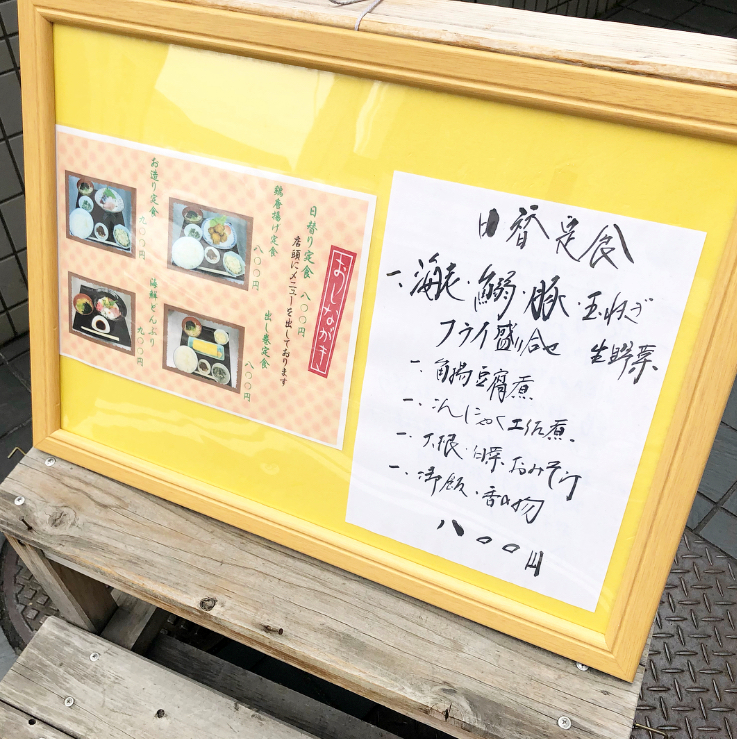 日替定食
一、海老・鰯・豚・玉ねぎ
フライ盛り合せ 生野菜
一、角揚豆腐煮
一、こんにゃく土佐煮
一、大根・白菜おみそ汁
一、御飯・香の物
八〇〇円
おしながき
日替り定食 八〇〇
店頭にメニューを出しております
鶏唐揚げ定食 八〇〇
出し巻定食 八〇〇
お造り定食 九〇〇
海鮮どんぶり 九〇〇